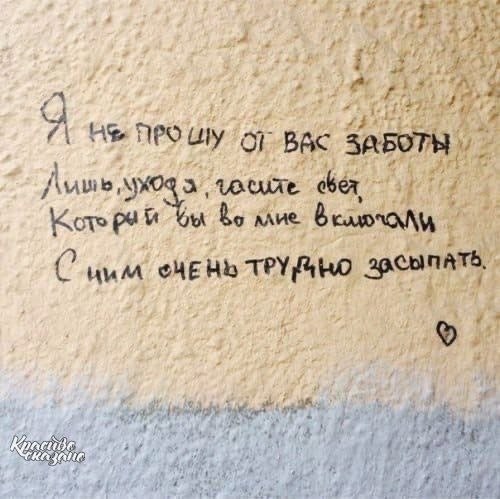 Я не прошу от вас заботы
Лишь, уходя, гасите свет,
Который вы во мне включали
С ним очень трудно засыпать.
Красиво
сказано